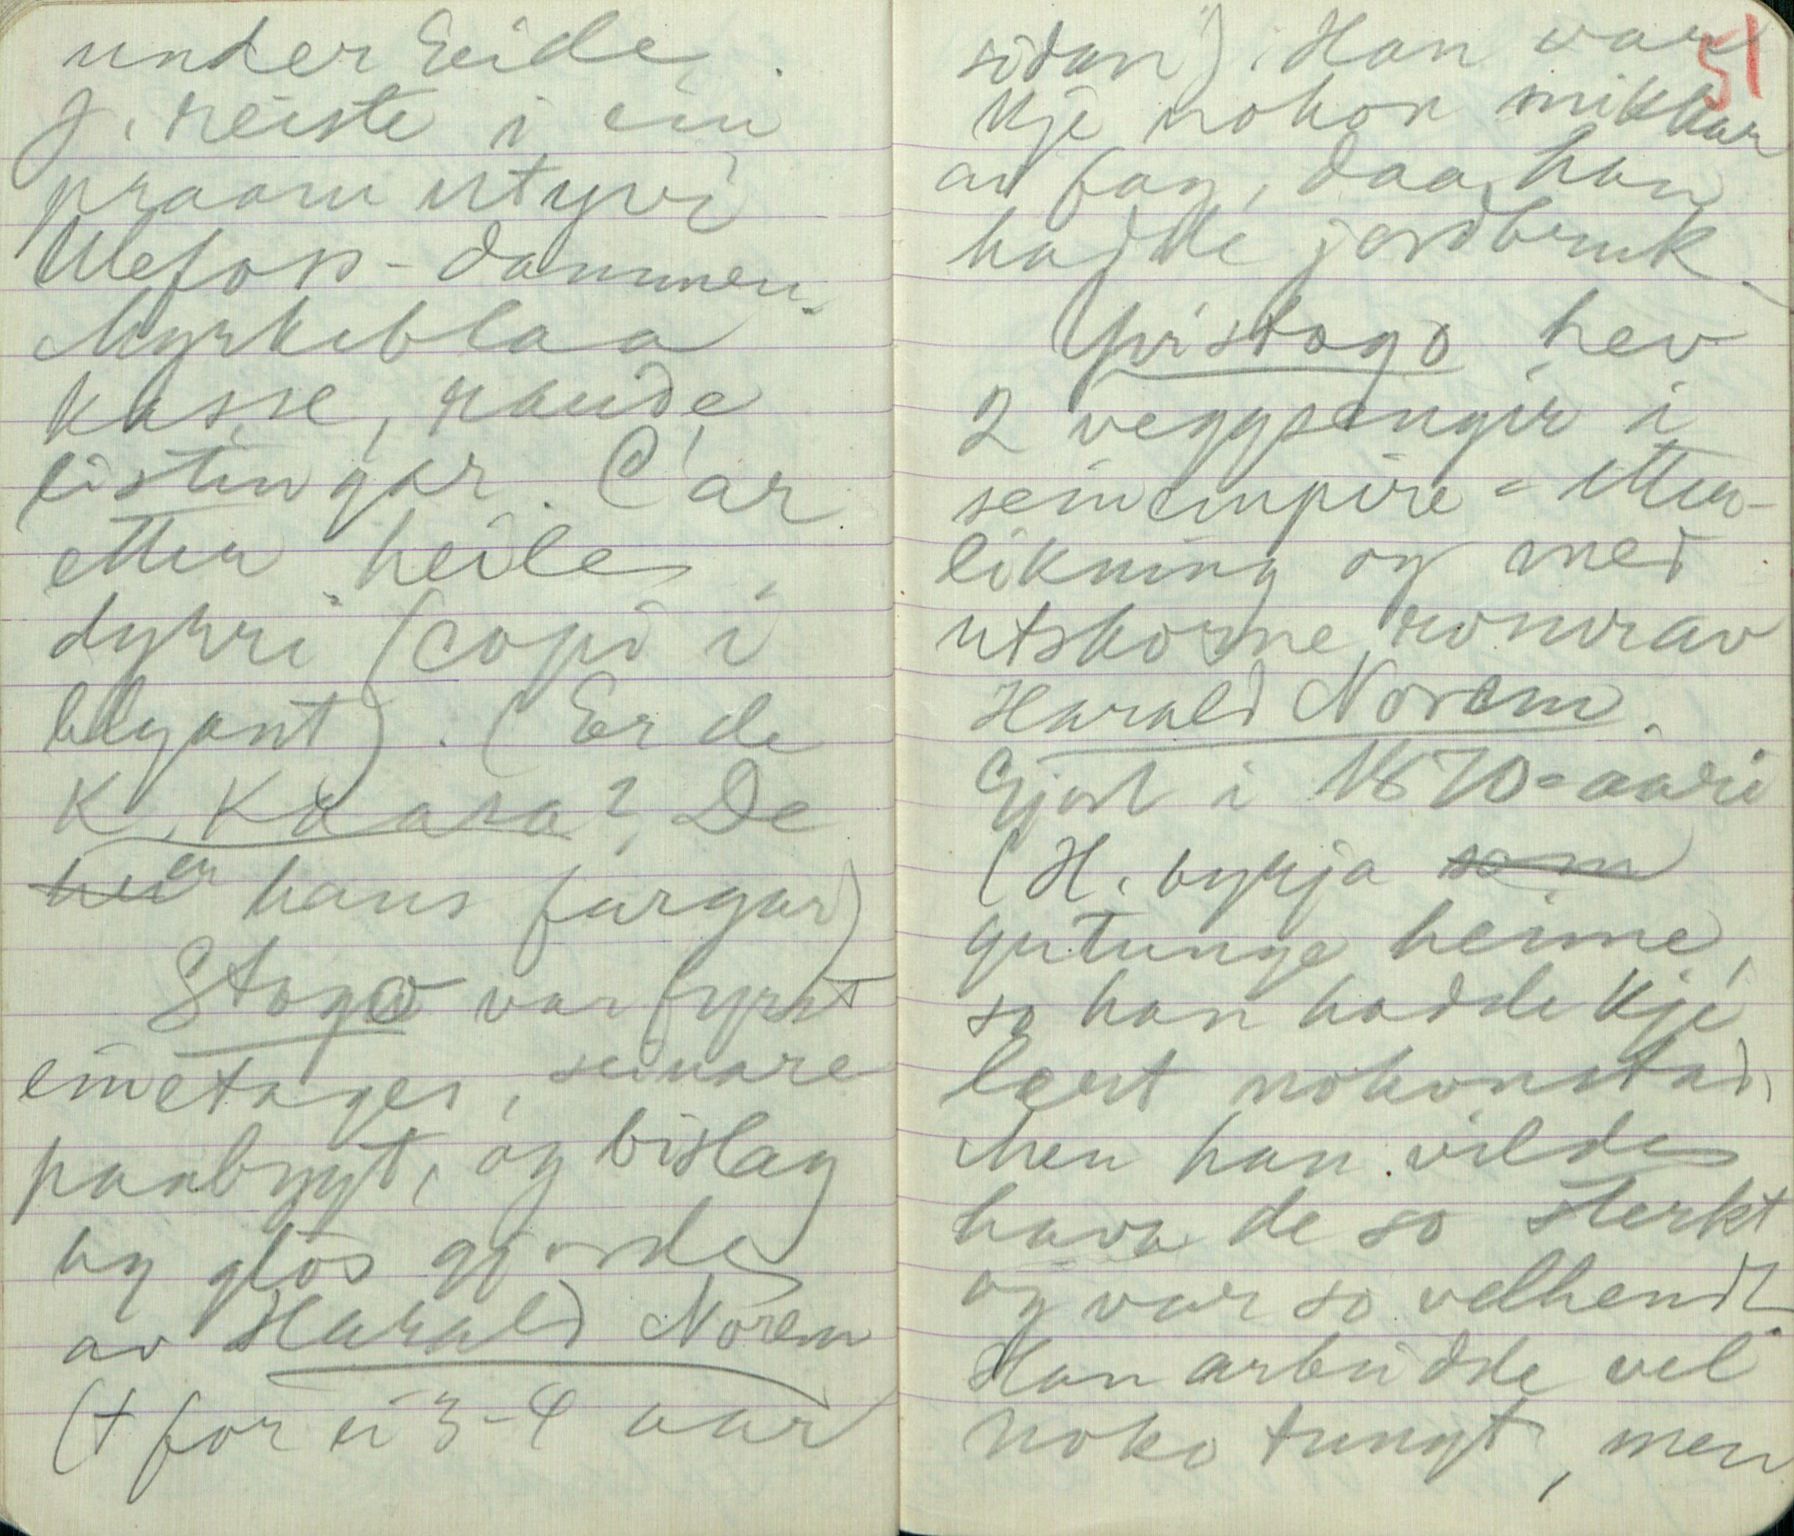 under Eide.
J. reiste i ein
praam utyvi
Ulefoss-dammen.
Myrkeblaa
kasse, raude
listingar. C'ar
etter heile
dyrri (copi i
blyant). (Er de
K. Kaasa? De
hev er hans fargar)
Stogo var fyrst
einetages, seinare
paabygt, og bislag
og glos gjorde
av Harald Norem
(† for ei 3-4 aar
sidan). Han var
kje nokon mikkar
av fag, daa han
hadde jordbruk.
51
Yvistogo hev
2 veggsengir i
seinempire-etter-
likning og med
utskorne av
Harald Norem.
Gjort i 1870-aari
(H. byrja som
gutunge heime,
so han hadde kje
lært nokonstad.
Men han vilde
hava de so sterkt
og var so velhendt.
Han arbeidde vel
noko tungt, men